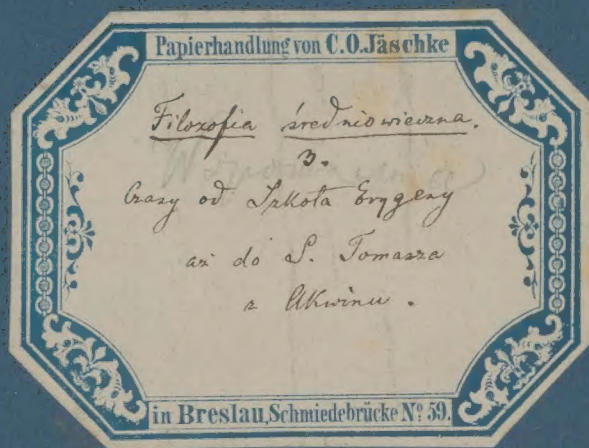 Papierhandlung von C.O. Jäschke
Filozofia średniowieczna.
3.
Czasy od Szkota Erygeny
aż do S. Tomasza
z Akwinu.
in Breslau, Schmiedebrücke No 59.